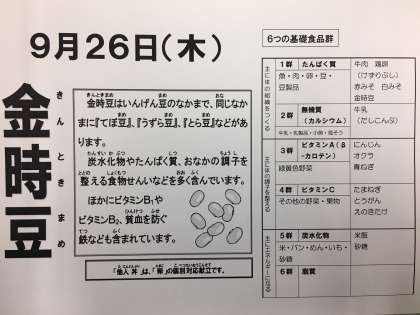 9月26日(木)
金時豆
きんときまめ
金時豆はいんげん豆のなかまで、同じなか
まに『てぼ豆』、『うずら豆』、『とら豆』などがあ
ります。
炭水化物やたんぱく質、おなかの調子を
整える食物せんいなどを多く含んでいます。
ほかにビタミンB₁や
ビタミンB₂、貧血を防ぐ
鉄なども含まれています。
「他人丼」は、「卵」の個別対応献立です。
6つの基礎食品群
主に体の組織をつくる
1群 たんぱく質
魚・肉・卵・豆・
豆製品
牛肉 鶏卵
(けずりぶし)
赤みそ 白みそ
金時豆
2群 無機質
(カルシウム)
牛乳・乳製品・小魚・海そう
牛乳
(だしこんぶ)
主に体の調子を整える
3群 ビタミンA(B-
カロテン)
緑黄色野菜
にんじん
オクラ
青ねぎ
4群 ビタミンC
その他の野菜・果物
たまねぎ
とうがん
えのきたけ
主にエネルギーになる
5群 炭水化物
米・パン・めん・いも・
砂糖
米飯
砂糖
6群 脂質